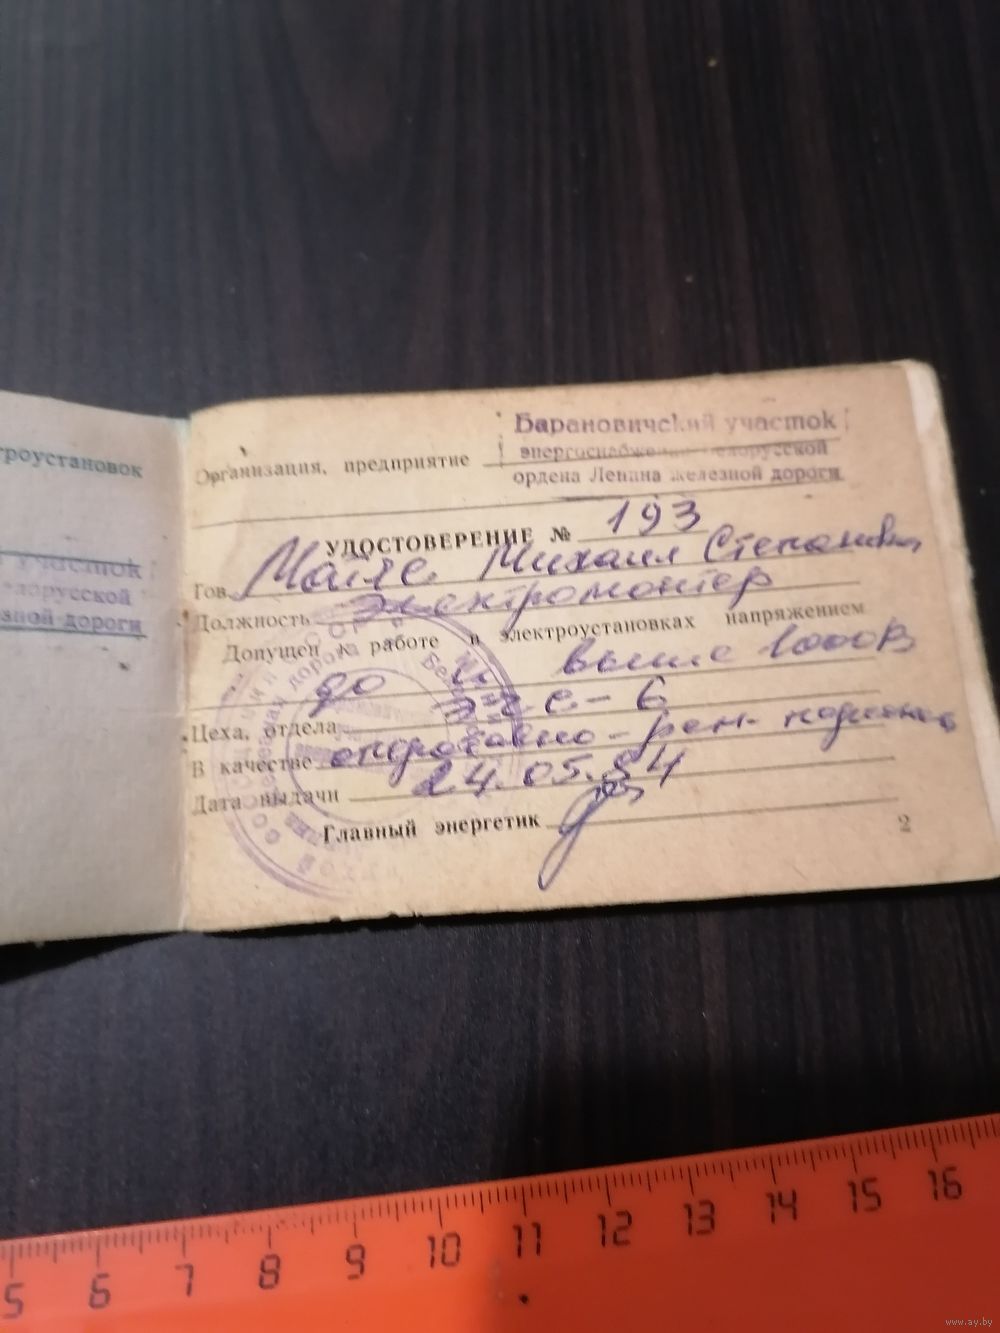 троустановок
участок
елорусской
зной дороги
Барановичский участок
энергоснабже елорусской
ордена Ленина железной дороги
Организация, предприятие
УДОСТОВЕРЕНИЕ № 193
Тов. Михаил Степанович
Должность Электромонтер
Допущен к работе в электроустановках напряжением
до и выше 1000В
Цеха, отдела
В качестве оперативно-рем.
Дата выдачи 24.05.54
Главный энергетик
2
5 6 7 8 9 10 11 12 13 14 15 16
www.ay.by